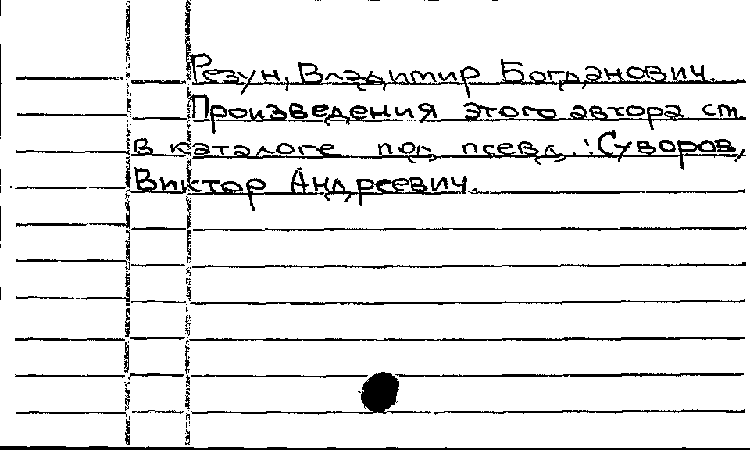 Резун, Владимир Богданович.
Произведения этого автора см.
в каталоге под псевд.: Суворов,
Виктор Андреевич.